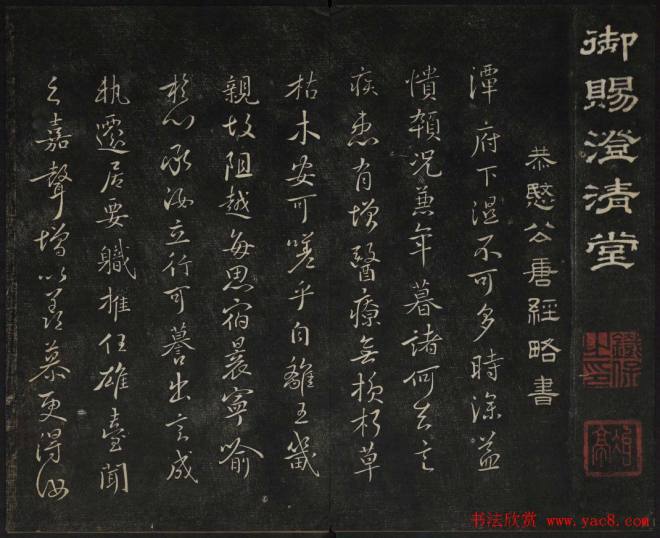 御賜澄清堂
恭愍公唐經略書
潭府下湿不可多時深益
憒頓况兼年暮諸何足言
疾患有增醫療無損朽草
枯木安可嗟乎自離王畿
親故阻越每思宿晨寧喻
於心承汝立行可譽出言成
執遷居要職推任雄臺聞
之嘉聲增以羨慕更得汝
鐵保之印
书法欣赏 www.yac8.com